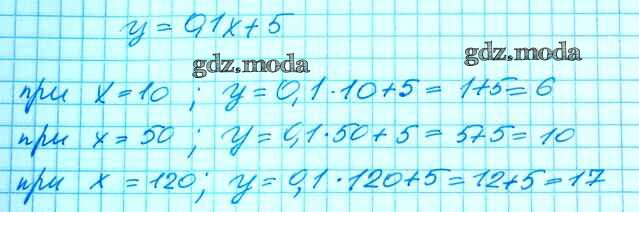 y = 0,1x + 5
gdz.moda
gdz.moda
при x = 10 ; y = 0,1 · 10 + 5 = 1+5 = 6
при x = 50 ; y = 0,1 · 50 + 5 = 5+5 = 10
при x = 120 ; y = 0,1 · 120 + 5 = 12+5 = 17